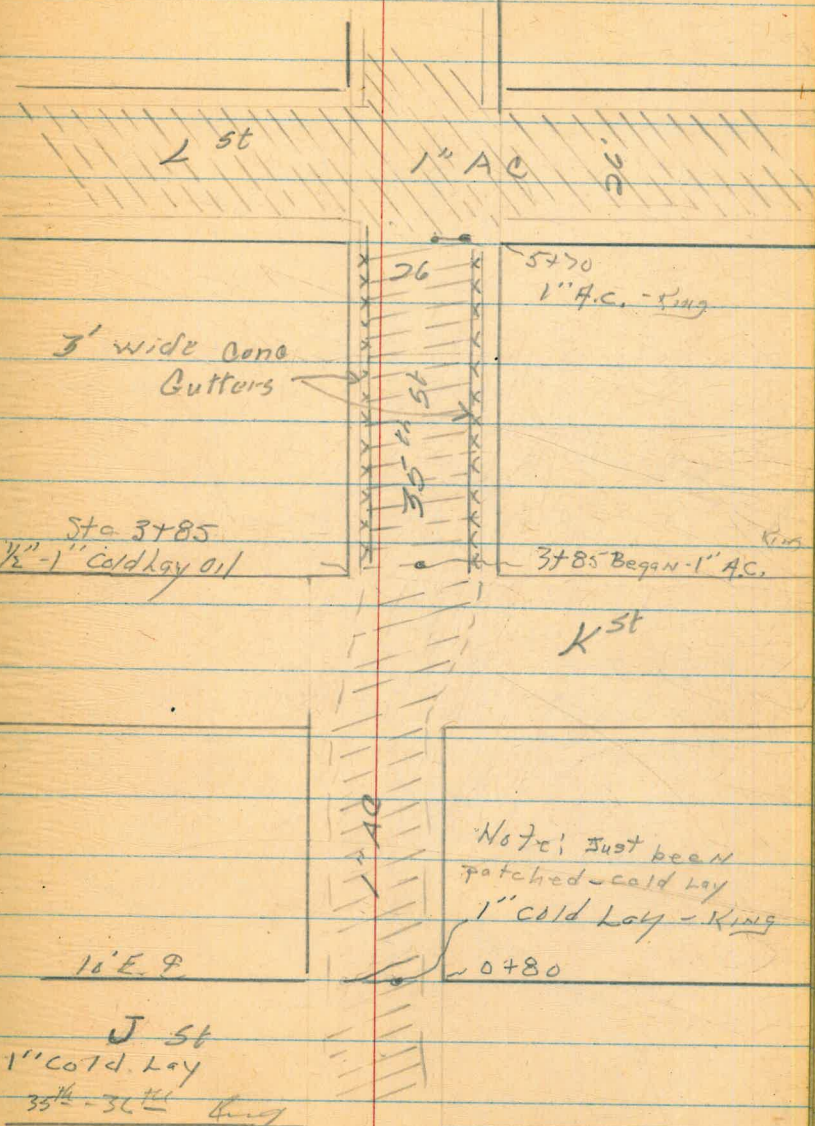 L St
1" A C
26'
26
5+70
1" A.C. - King
3' wide Conc
Gutters
35-th St
Sta 3+85
1/2"-1" Cold Lay Oil
King
3+85 Began-1" A.C.
K St
1" AC
Note: Just been
patched-cold Lay
1" Cold Lay - King
10' E. ℄
0+80
J St
1" Cold Lay
35th - 36th King